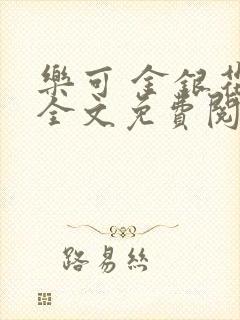 樂可 金銀花
全文免費閱
路易絲